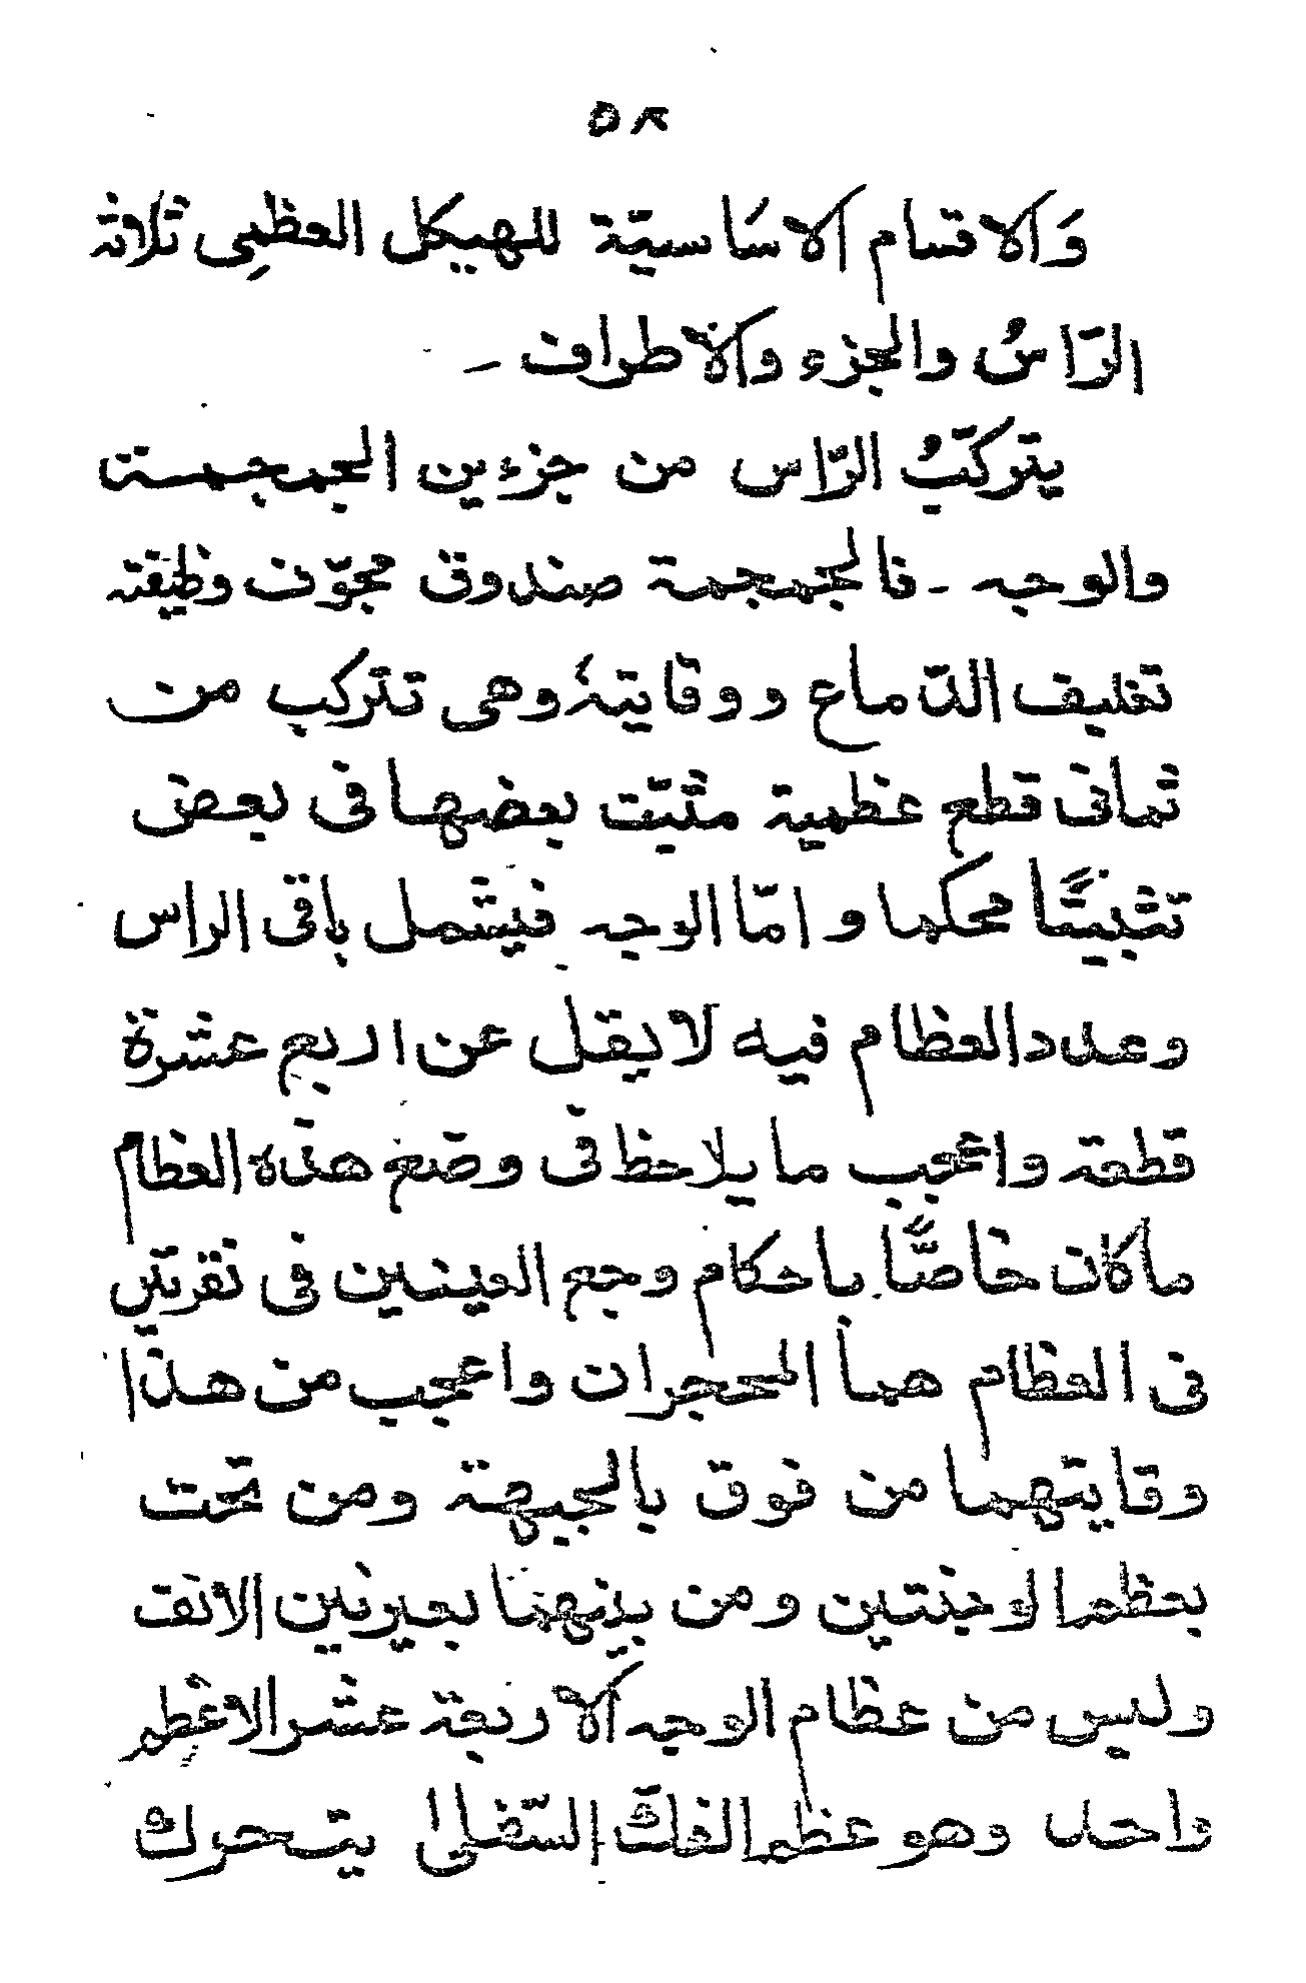 ٥٨
وَالاقسام الاسَاسيّة للهيكل العظمِى ثلاثة
الرّاسُ والجزء والاطراف ـ
يتركّبُ الرّاس من جزءين الجمجمة
والوجه ـ فالجمجمة صندوق مجوّف وظيفته
تغليف الدّماع ووقايته وهى تتركب من
ثمانى قطع عظمية مثبّت بعضها فى بعض
تثبيتًا محكما و امّا الوجه فيشمل باقى الراس
وعدد العظام فيه لا يقل عن اربع عشرة
قطعة واعجب ما يلاحظ فى وضع هذه العظام
ما كان خاصًّا باحكام وجع العينين فى نقرتين
فى العظام هما المحجران واعجب من هذا
وقايتهما من فوق بالجبهة ومن تحت
بعظما الوجنتين ومن بينهما بعيرنين الانف
وليس من عظام الوجه الاربعة عشر الاعظم
واحد وهو عظم الفكّ السّفلى يتحرك